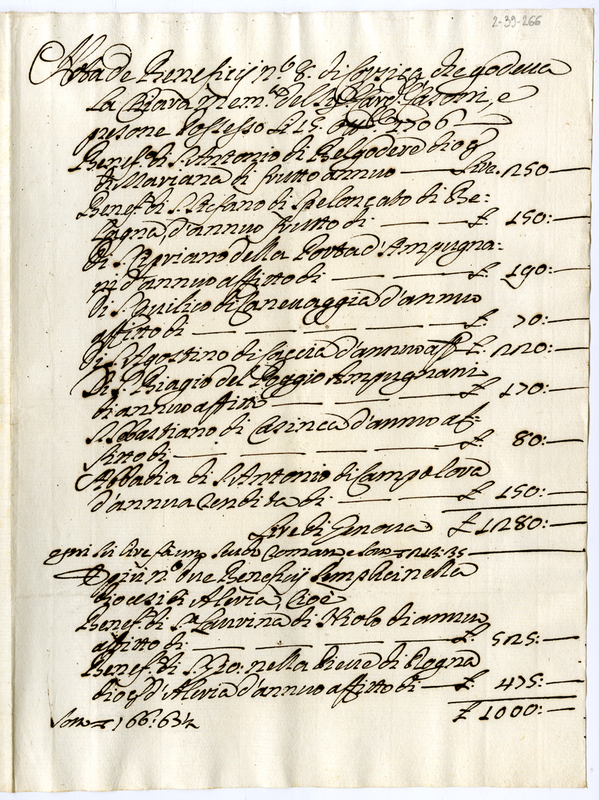 2-39-266
Nota de Beneficij n.º 8. di Corsica che godeva
La Chiara mem. del S. Fasoni, e
presone Possesso li 15. 1706
Benef. di S. Antonio di Belgodere dioc.
di Mariana di frutto annuo — Lire. 250
Benef. di S. Stefano di Speloncato di Be:
lagna, d'annuo frutto di — £. 150:—
di S. Cipriano della Porta d'Ampugna:
ni d'annuo affitto di — £. 190:—
di S. Quilico di Canevaggia d'annuo
affitto di — £. 70:—
di S. Agostino di Caccia d'annuo aff. £. 220:—
Di S. Biagio del Poggio Ampugnani
di annuo affitto — £. 170:—
S. Sebastiano di Casinca d'annuo af:
fitto di — £. 80:—
Abbadia di S. Antonio di Campolovo
d'annua Rendita di — £. 150:—
Lire di Genova £ 1280:—
scudi Romani e sono 213:35
Di più n.º due Beneficij semplici nella
diocesi di Aleria, cioè
Benef. di S. Laurina di Niolo di annuo
affitto di — £. 525:—
Benef. di S. Gio: nella Pieve di Rogna
dioc. d'Aleria d'annuo affitto di — £. 475:—
Sono 166:63½ £ 1000:—